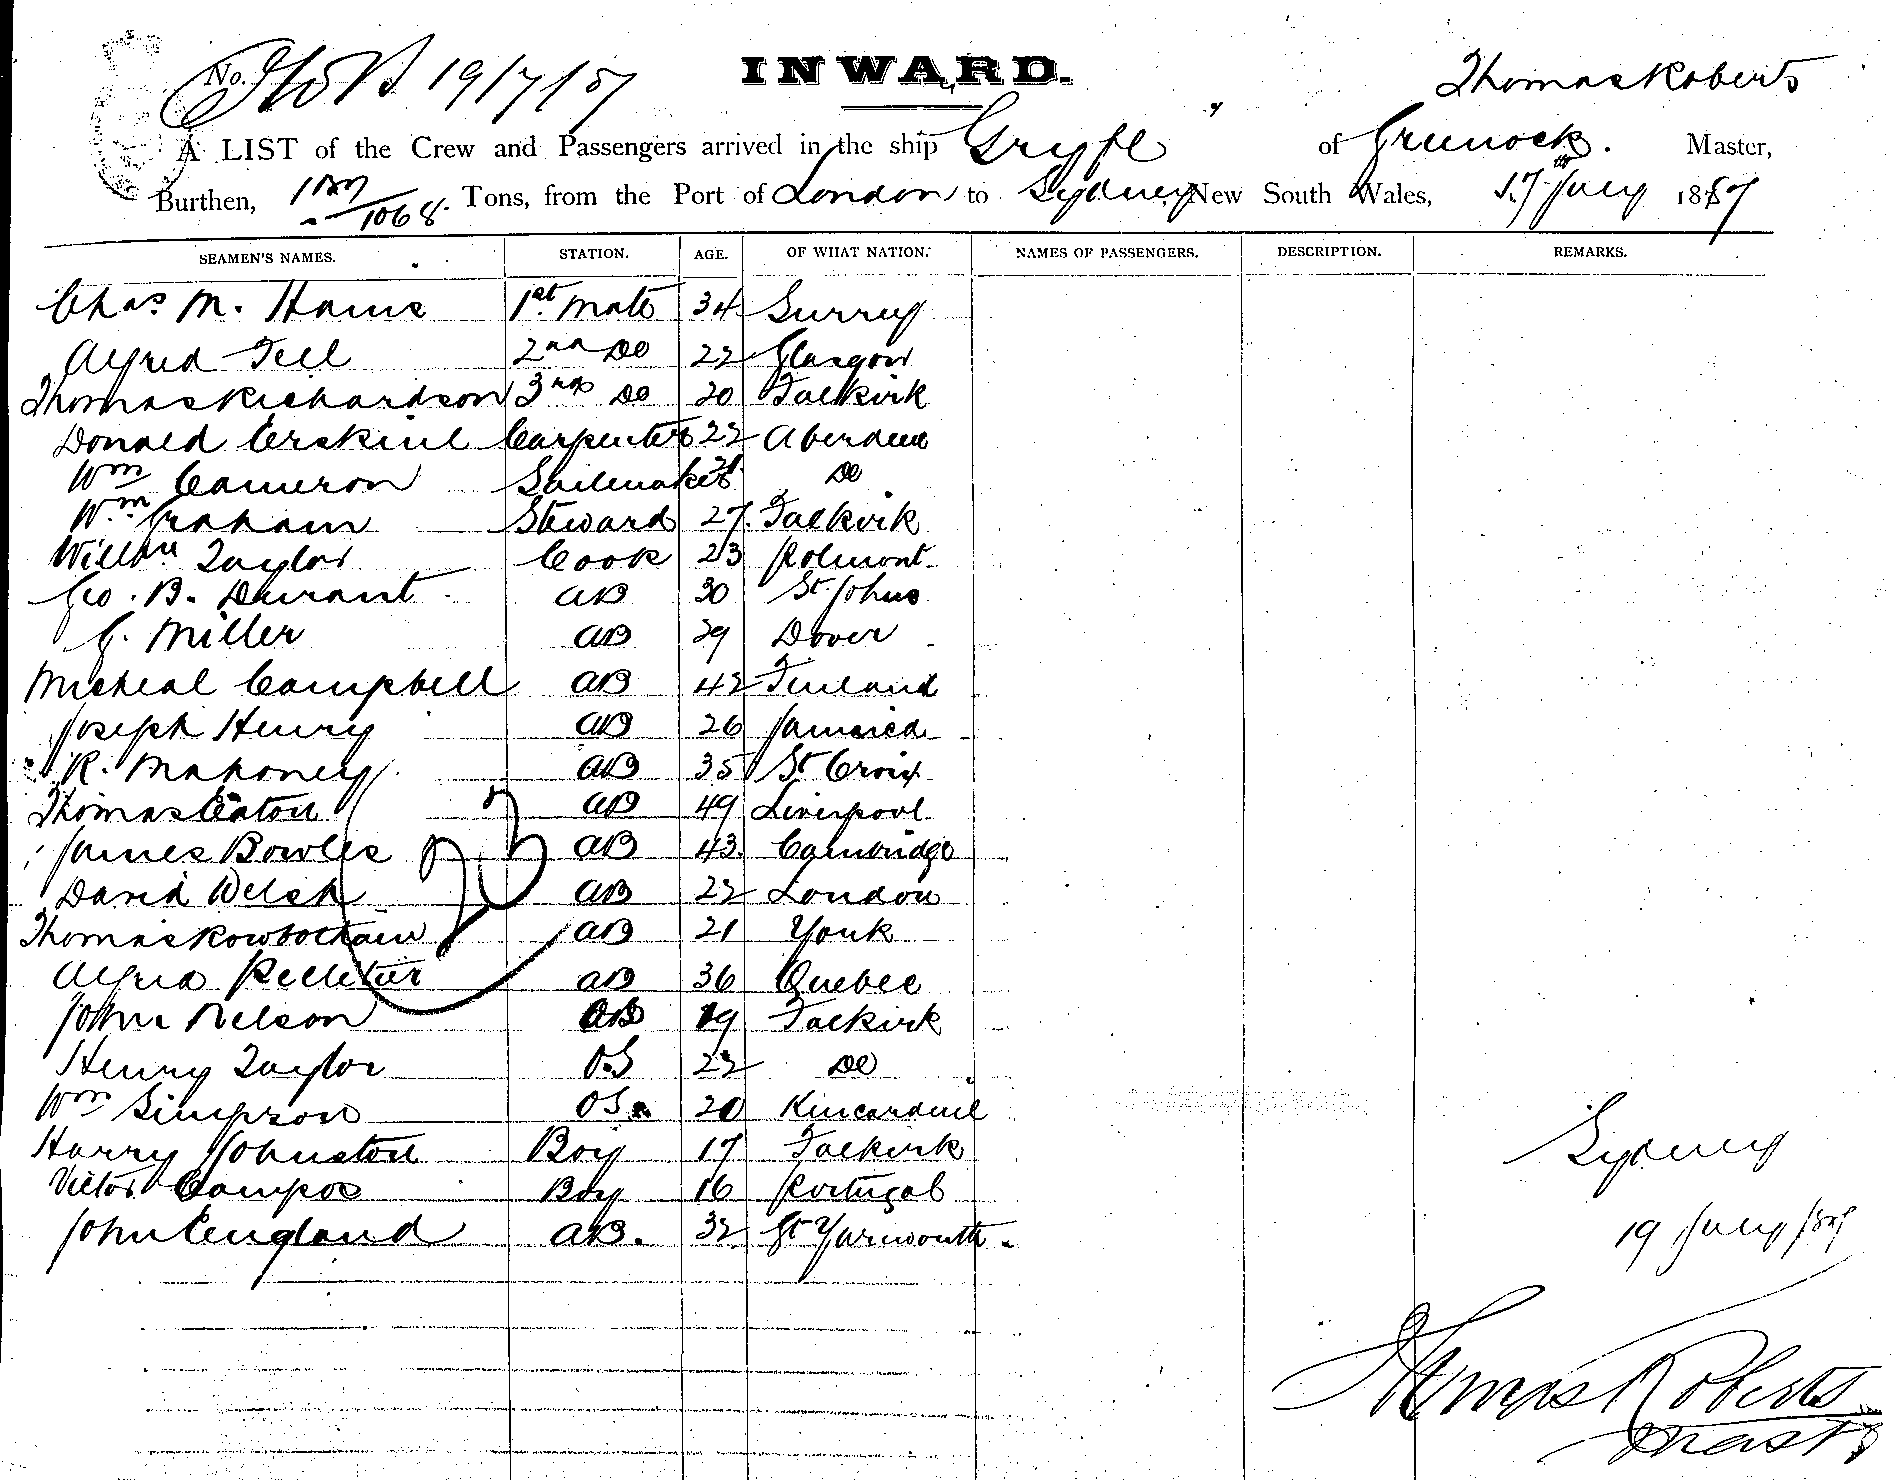 No. 19/7/87
INWARD.
Thomas Roberts
A LIST of the Crew and Passengers arrived in the ship "Gryfe" of Greenock. Master,
Burthen, 1068. Tons, from the Port of London to Sydney, New South Wales, 17th July 1887
SEAMEN'S NAMES. STATION. AGE. OF WHAT NATION. NAMES OF PASSENGERS. DESCRIPTION. REMARKS.
Chas. M. 1st Mate 34 Surrey
Alfred Tell 2nd Do 22 Glasgow
Thomas Richardson 3rd Do 20 Falkirk
Donald Erskine Carpenter 22 Aberdeen
Wm Cameron Sailmaker Do
Wm Graham Steward 27 Falkirk
Willm Taylor Cook 23 Polmont
Geo. B. Durant AB 30 St Johns
G. Miller AB 29 Dover
Micheal Campbell AB 42 Finland
Joseph Henry AB 26 Jamaica
R. Mahoney AB 35 St Croix
Thomas Eaton AB 49 Liverpool
James Bowles AB 43 Cambridge
David Welsh AB 22 London
Thomas Rowbotham AB 21 York
Alfred Pelletier AB 36 Quebec
John Nelson 19 Falkirk
Henry Taylor O.S 22 Do
Wm Simpson OS. 20 Kincardine
Harry Johnston Boy 17 Falkirk
Victor Campos Boy 16 Portugal
John England AB. 32 Gt Yarmouth
23
Sydney
19 July /87
Thomas Roberts
Master